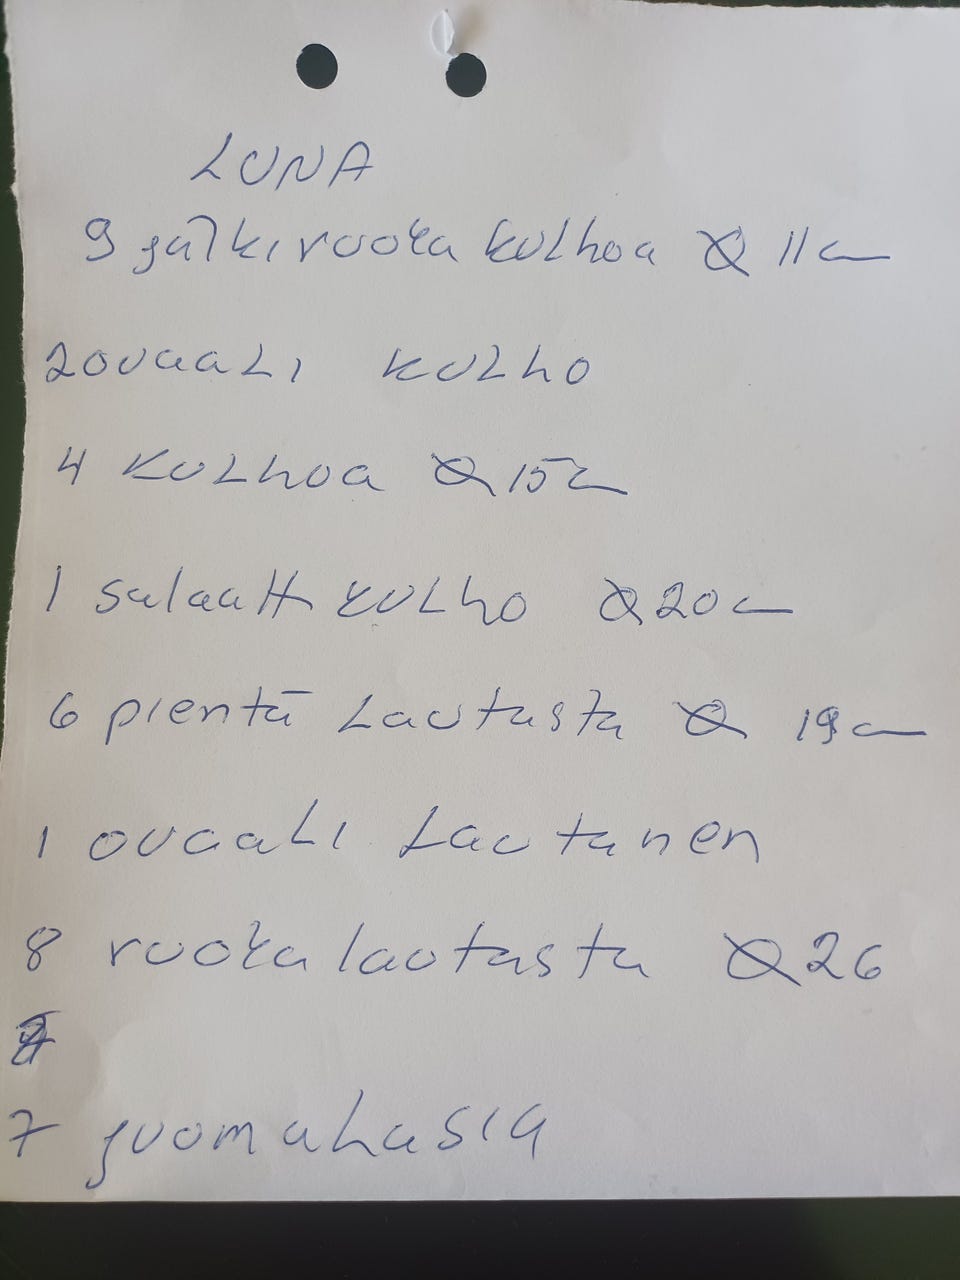 LUNA
9 jälkiruoka kulhoa Ø 11cm
2 ovaali kulho
4 kulhoa Ø 15cm
1 salaatti kulho Ø 20cm
6 pientä lautasta Ø 19cm
1 ovaali lautanen
8 ruoka lautasta Ø 26
7 juomalasia